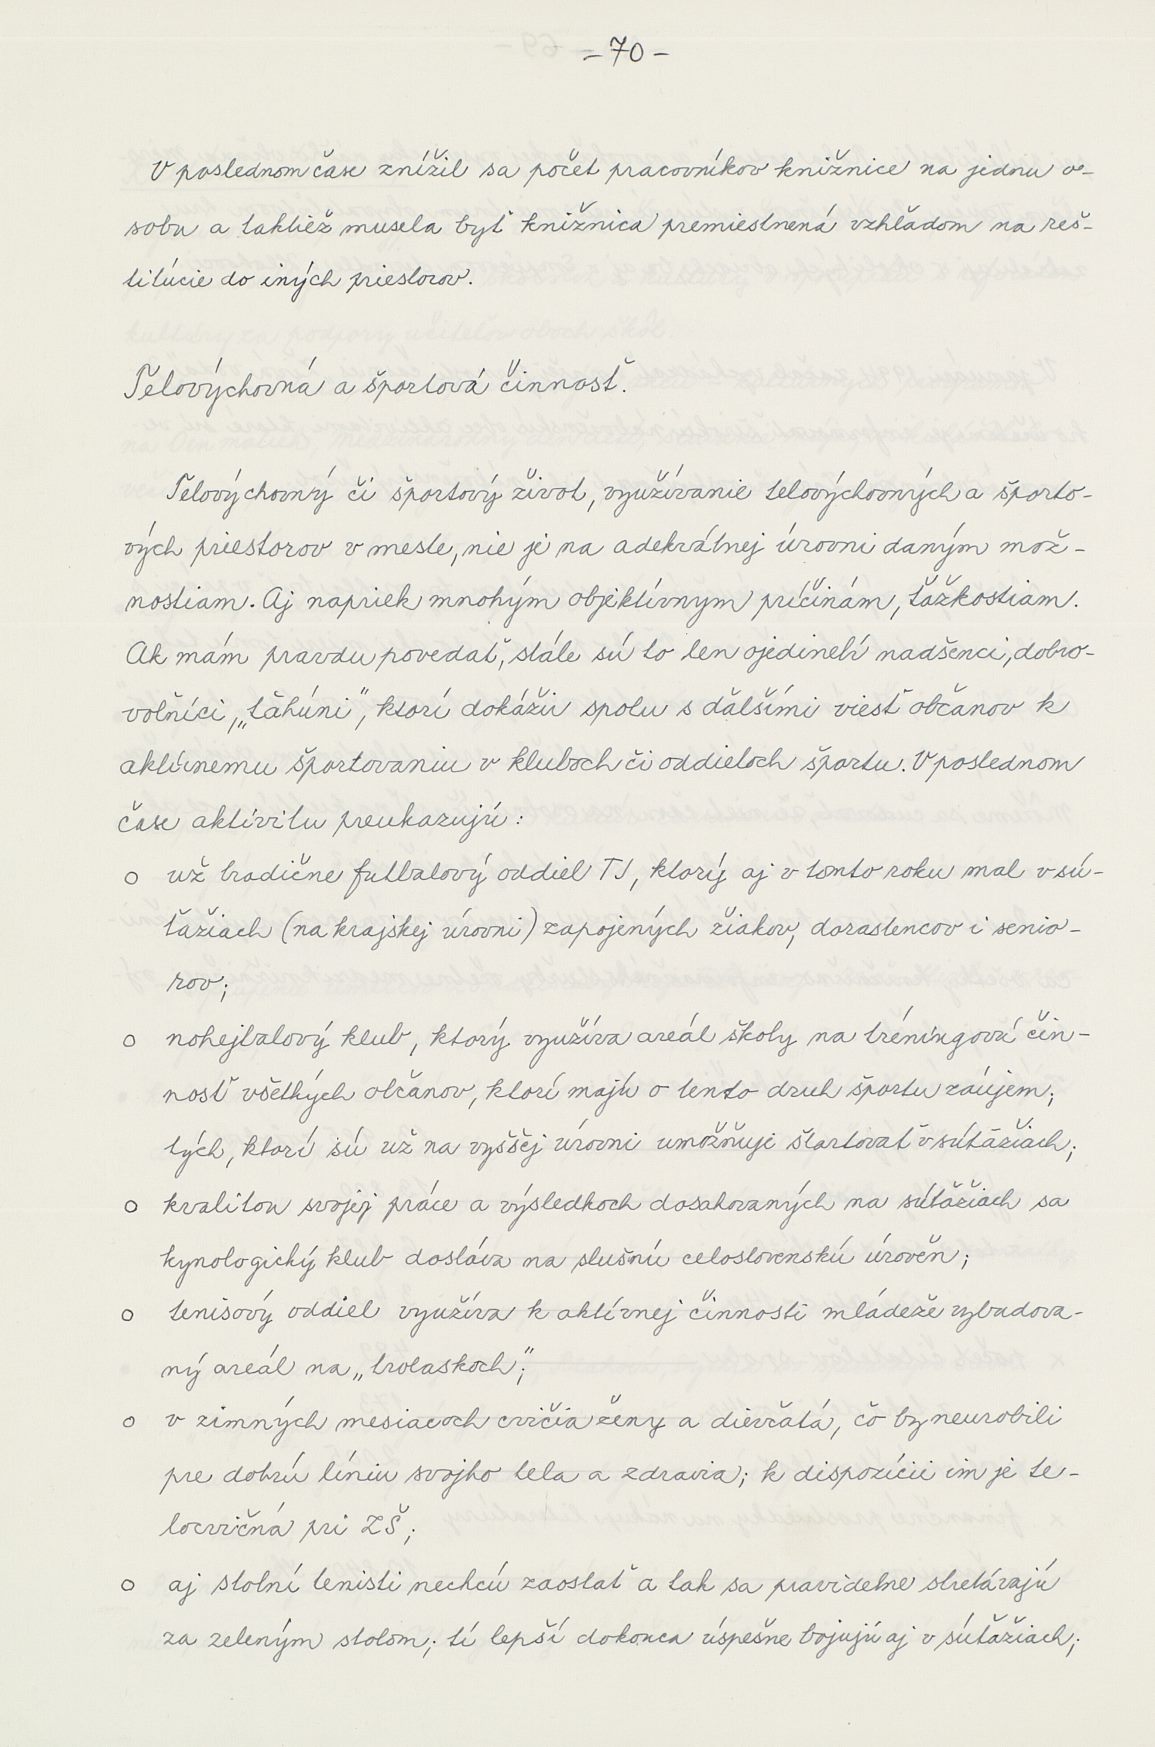 - 70 -
V poslednom čase znížil sa počet pracovníkov knižnice na jednu o-
sobu a taktiež musela byť knižnica premiestnená vzhľadom na reš-
titúcie do iných priestorov.
Telovýchovná a športová činnosť.
Telovýchovný či športový život, využívanie telovýchovných a športo-
vých priestorov v meste, nie je na adekvátnej úrovni daným mož-
nostiam. Aj napriek mnohým objektívnym príčinám, ťažkostiam.
Ak mám pravdu povedať, stále sú to len ojedinelí nadšenci, dobro-
voľníci, „ťahúni", ktorí dokážu spolu s ďalšími viesť občanov k
aktívnemu športovaniu v kluboch či oddieloch športu. V poslednom
čase aktivitu preukazujú:
o už tradične futbalový oddiel TJ, ktorý aj v tomto roku mal v sú-
ťažiach (na krajskej úrovni) zapojených žiakov, dorastencov i senio-
rov;
o nohejbalový klub, ktorý využíva areál školy na tréningovú čin-
nosť všetkých občanov, ktorí majú o tento druh športu záujem;
tých, ktorí sú už na vyššej úrovni umožňuje štartovať v súťažiach;
o kvalitou svojej práce a výsledkoch dosahovaných na súťažiach sa
kynologický klub dostáva na slušnú celoslovenskú úroveň;
o tenisový oddiel využíva k aktívnej činnosti mládeže vybudova-
ný areál na „trolaskoch";
o v zimných mesiacoch cvičia ženy a dievčatá, čo by neurobili
pre dobrú líniu svojho tela a zdravia; k dispozícii im je te-
locvičňa pri ZŠ;
o aj stolní tenisti nechcú zaostať a tak sa pravidelne stretávajú
za zeleným stolom; tí lepší dokonca úspešne bojujú aj v súťažiach;